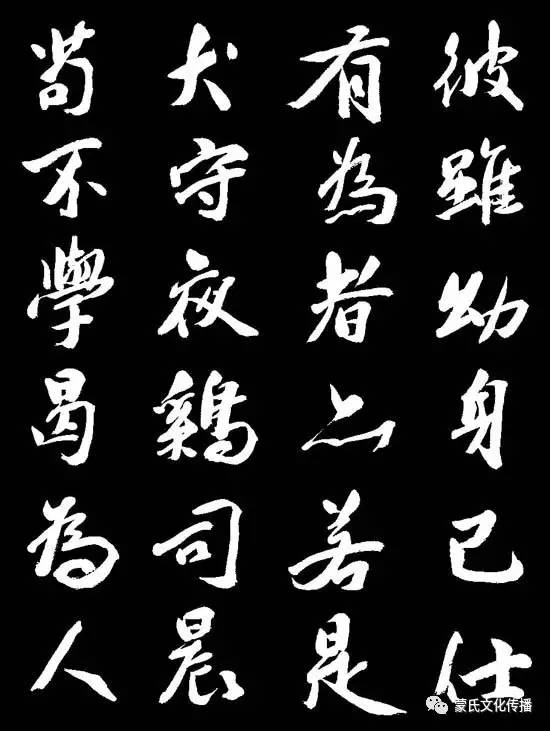 彼雖幼身已仕
有為者亦若是
犬守夜鷄司晨
苟不學曷為人
蒙氏文化传播